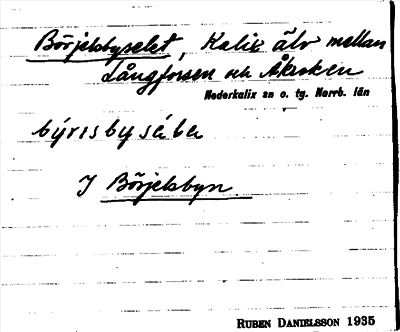 Börjelsbyselet, Kalix älv mellan
Långforsen och Åkroken
Nederkalix sn o. tg. Norrb. län
býrısbyséla
I Börjelsbyn
RUBEN DANIELSSON 1935